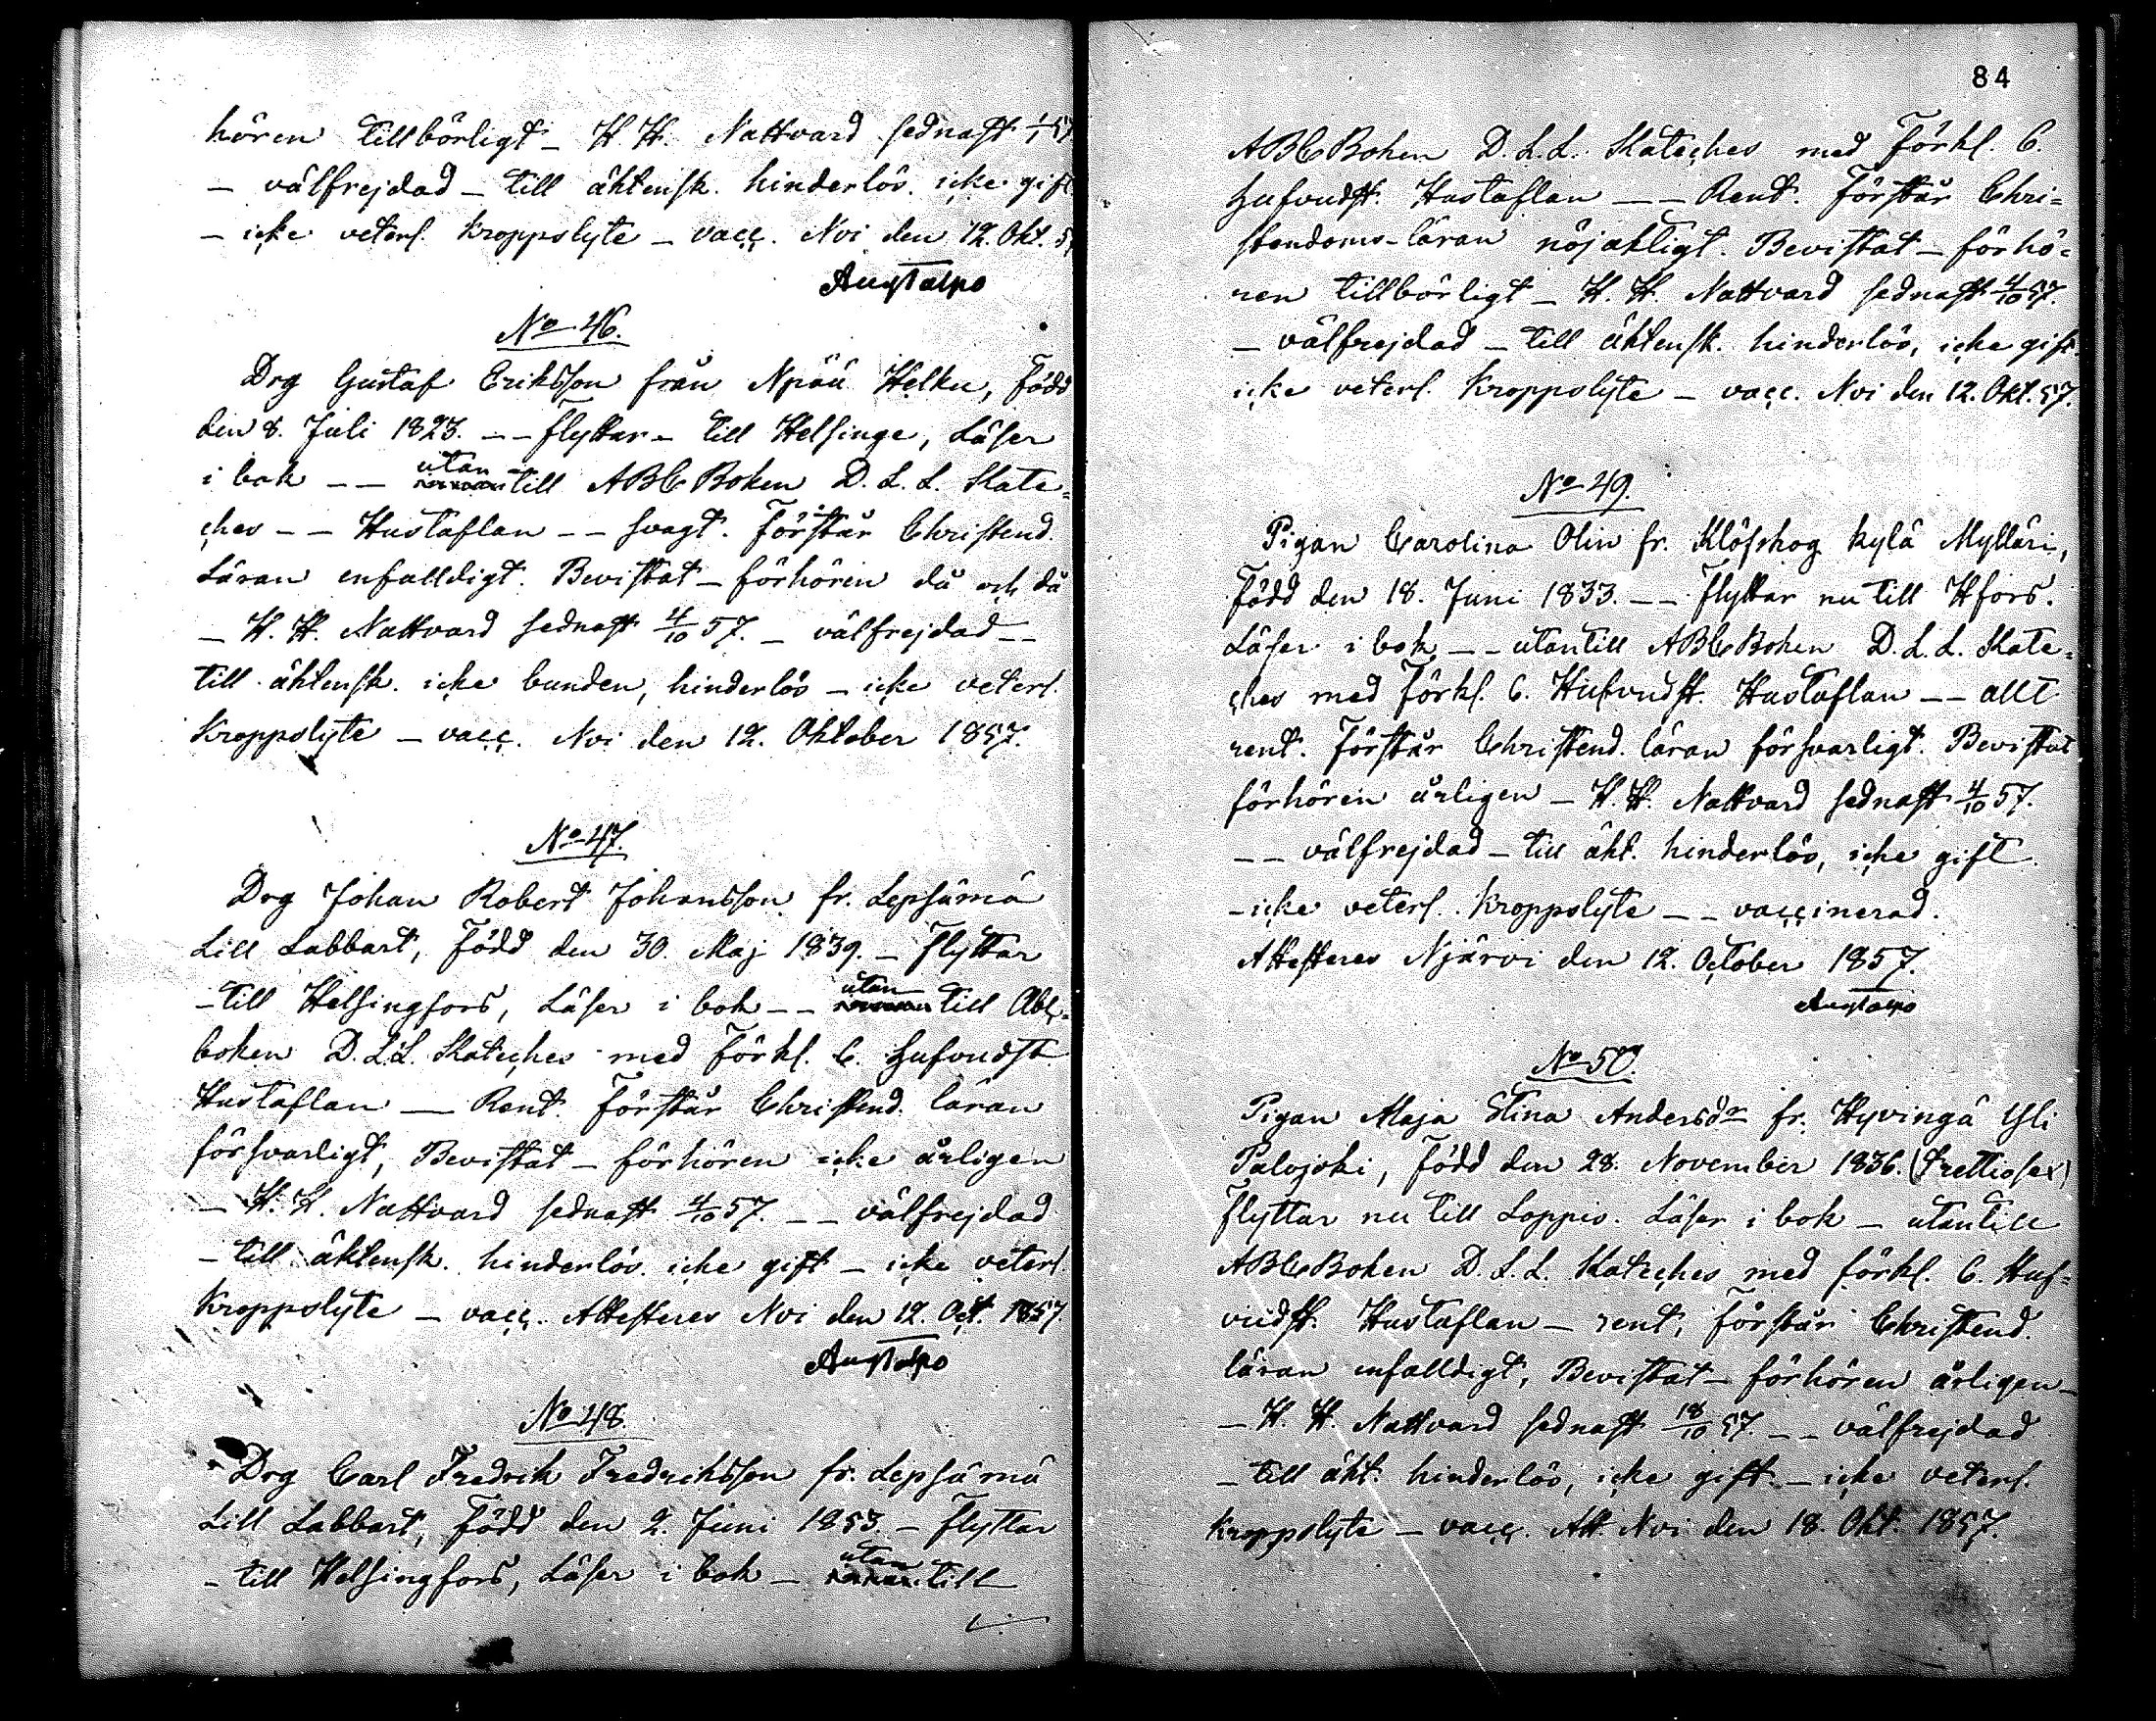 hören tillbörligt _ H. H. Nattvard sednast 57
_ välfrejdad _ till äktensk. hinderlös. icke gift
_ icke veterl. kroppslyte _ vacc. Nvi den 12. Okt. 5
Augst alpo
No 46.
Drg Gustaf Eriksson från Npää Helku, född
den 8. Juli 1823. _ _ flyttar _ till Helsinge, Läser
i bok _ _ utan till ABC Boken D. L. L. Kate=
ches _ _ Hustaflan _ _ svagt. Förstår Christend.
Läran enfalldigt. Bevistat _ förhören då och då
_ H. H. Nattvard sednast 4/10 57. _ välfrejdad _ _
till äktensk. icke bunden, hinderlös _ icke veterl.
kroppslyte _ vacc. Nvi den 12. Oktober 1857.
No 47.
Drg Johan Robert Johansson fr. Lepsämä
Lill Labbart, född den 30. Maj 1839. _ flyttar
_ till Helsingfors, Läser i bok _ _ utan till Abc=
boken D. L. L. Kateches med Förkl. C. Hufvudst.
Hustaflan _ Rent. Förstår Christend. läran
försvarligt, Bevistat _ förhören icke årligen
_ H. H. Nattvard sednast 4/10 57. _ _ välfrejdad
_ till äktensk. hinderlös. icke gift _ icke veterl.
kroppslyte _ vacc. Attesteres Nvi den 12. Oct. 1857.
Augst alpo
No 48.
Drg Carl Fredrik Fredriksson fr. Lepsämä
Lill Labbart, född den 2. Juni 1853. _ flyttar
_ till Helsingfors, Läser i bok _ utan till
84
ABC Boken D. L. L. Kateches med Förkl. C.
Hufvudst. Hustaflan _ _ Rent. Förstår Chri=
stendoms-läran nöjaktligt. Bevistat _ förhö=
ren tillbörligt _ H. H. Nattvard sednast 4/10 57.
_ välfrejdad _ till äktensk. hinderlös, icke gift.
icke veterl. kroppslyte _ vacc. Nvi den 12. Okt. 57.
No 49.
Pigan Carolina Olin fr. Klöfskog kylä Mylläri,
född den 18. Juni 1833. _ _ flyttar nu till Hfors.
Läser i bok _ _ utantill ABC Boken D. L. L. Kate=
ches med Förkl. C. Hufvudst. Hustaflan _ _ allt
rent. Förstår Christend. läran försvarligt. Bevistat
förhören årligen _ H. H. Nattvard sednast 4/10 57.
_ _ välfrejdad _ till äkt. hinderlös, icke gift.
_ icke veterl. kroppslyte _ _ vaccinerad.
Attesteres Njärvi den 12. October 1857.
Augst alpo
No 50.
Pigan Maja Stina Andersdr fr. Hyvingä Yli
Palojoki, född den 28. November 1836. (trettiosex)
flyttar nu till Loppis. Läser i bok _ utantill
ABC Boken D. L. L. Kateches med förkl. C. Huf=
vudst. Hustaflan _ rent, förstår Christend.
läran enfalldigt, Bevistat _ förhören årligen _
_ H. H. Nattvard sednast 18/10 57. _ _ välfrejdad
_ till äkt. hinderlös, icke gift _ icke veterl.
kroppslyte _ vacc. Att. Nvi den 18. Okt. 1857.